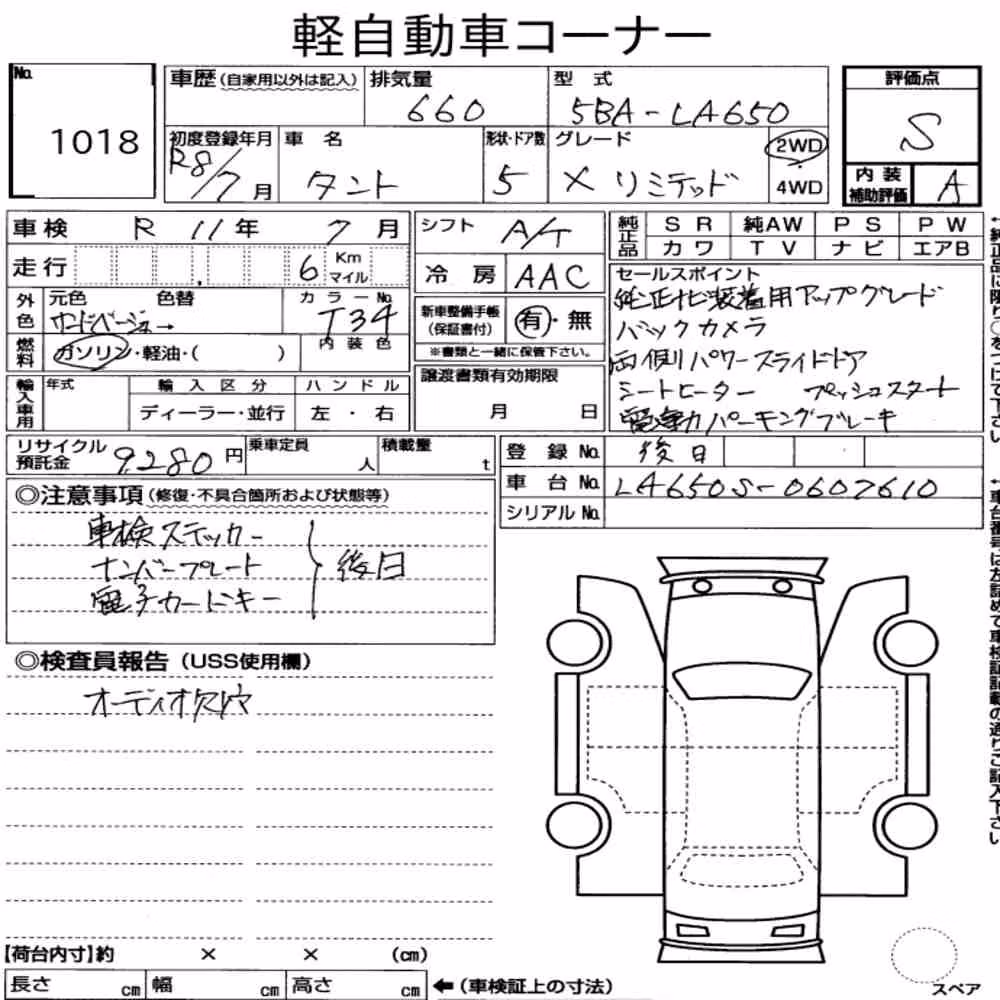 軽自動車コーナー
No. 1018
車歴 (自家用以外は記入)
排気量 660
型式 5BA-LA650
評価点 S
初度登録年月 R8/7月
車名 タント
形状・ドア数 5
グレード X リミテッド
2WD
4WD
内装補助評価 A
車検 R 11年 7月
シフト A/T
純正品 SR 純AW PS PW
カワ TV ナビ エアB
走行 6 Km マイル
冷房 AAC
セールスポイント
純正ナビ装着用アップグレード
バックカメラ
両側パワースライドドア
シートヒーター プッシュスタート
電動パーキングブレーキ
外色 元色 色替 カラーNo.
サンドベージュ→ T34
新車整備手帳 (保証書付) 有・無
※書類と一緒に保管下さい。
燃料 ガソリン・軽油・( )
内装色
輸入車用 年式 輸入区分 ハンドル
ディーラー・並行 左・右
譲渡書類有効期限
月 日
リサイクル預託金 9,280円
乗車定員 人
積載量 t
登録No. 後日
車台No. LA650S-0607610
シリアルNo.
◎注意事項 (修復・不具合箇所および状態等)
車検ステッカー
ナンバープレート
電子カードキー
後日
◎検査員報告 (USS使用欄)
オーディオ欠穴
【荷台内寸】約 × × (cm)
長さ cm 幅 cm 高さ cm ←(車検証上の寸法)
スペア
↑純正品に限り○をつけて下さい
↑車台番号は左詰めで車検証記載の通りご記入下さい